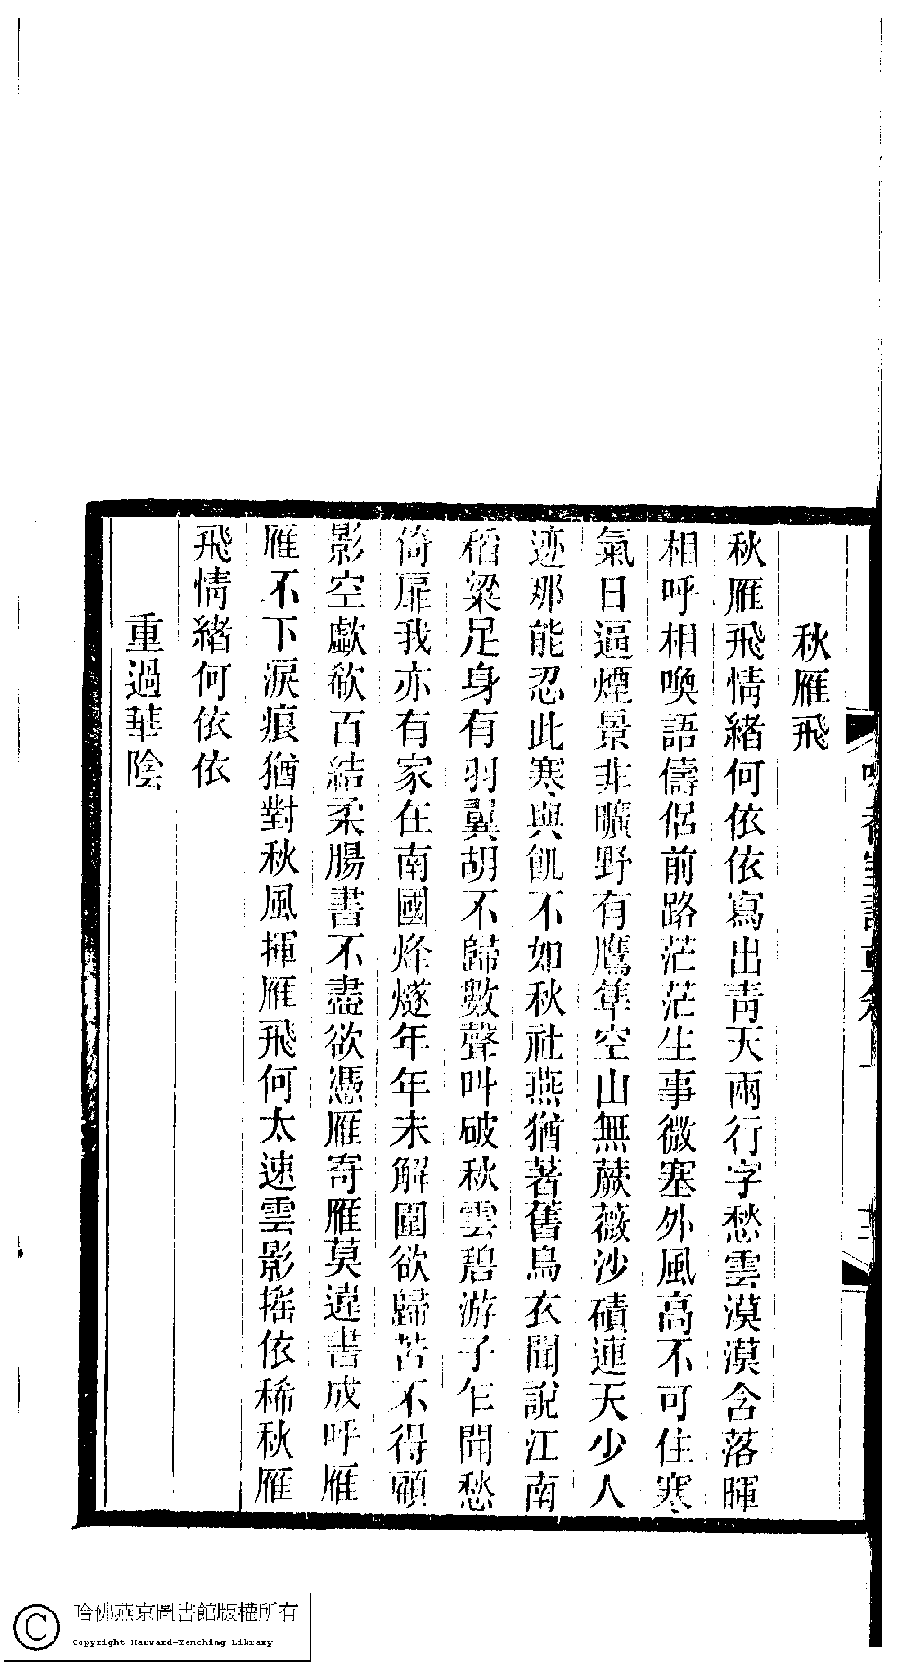 秋雁飛
秋雁飛情緒何依依寫出青天兩行字愁雲漠漠含落暉
相呼相喚語儔侶前路茫茫生事微塞外風高不可住寒
氣日逼煙景非曠野有鷹隼空山無蕨薇沙磧連天少人
迹那能忍此寒與飢不如秋社燕猶著舊烏衣聞說江南
稻粱足身有羽翼胡不歸數聲叫破秋雲碧游子乍聞愁
倚扉我亦有家在南國烽燧年年未解圍欲歸苦不得顧
影空歔欷百結柔腸書不盡欲憑雁寄雁莫違書成呼雁
雁不下淚痕猶對秋風揮雁飛何太速雲影搖依稀秋雁
飛情緒何依依
重過華陰
哈佛燕京圖書館版權所有
Copyright Harvard-Yenching Library